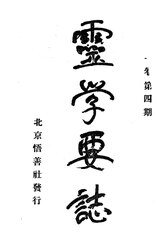 年第四期
靈學要誌
北京悟善社發行